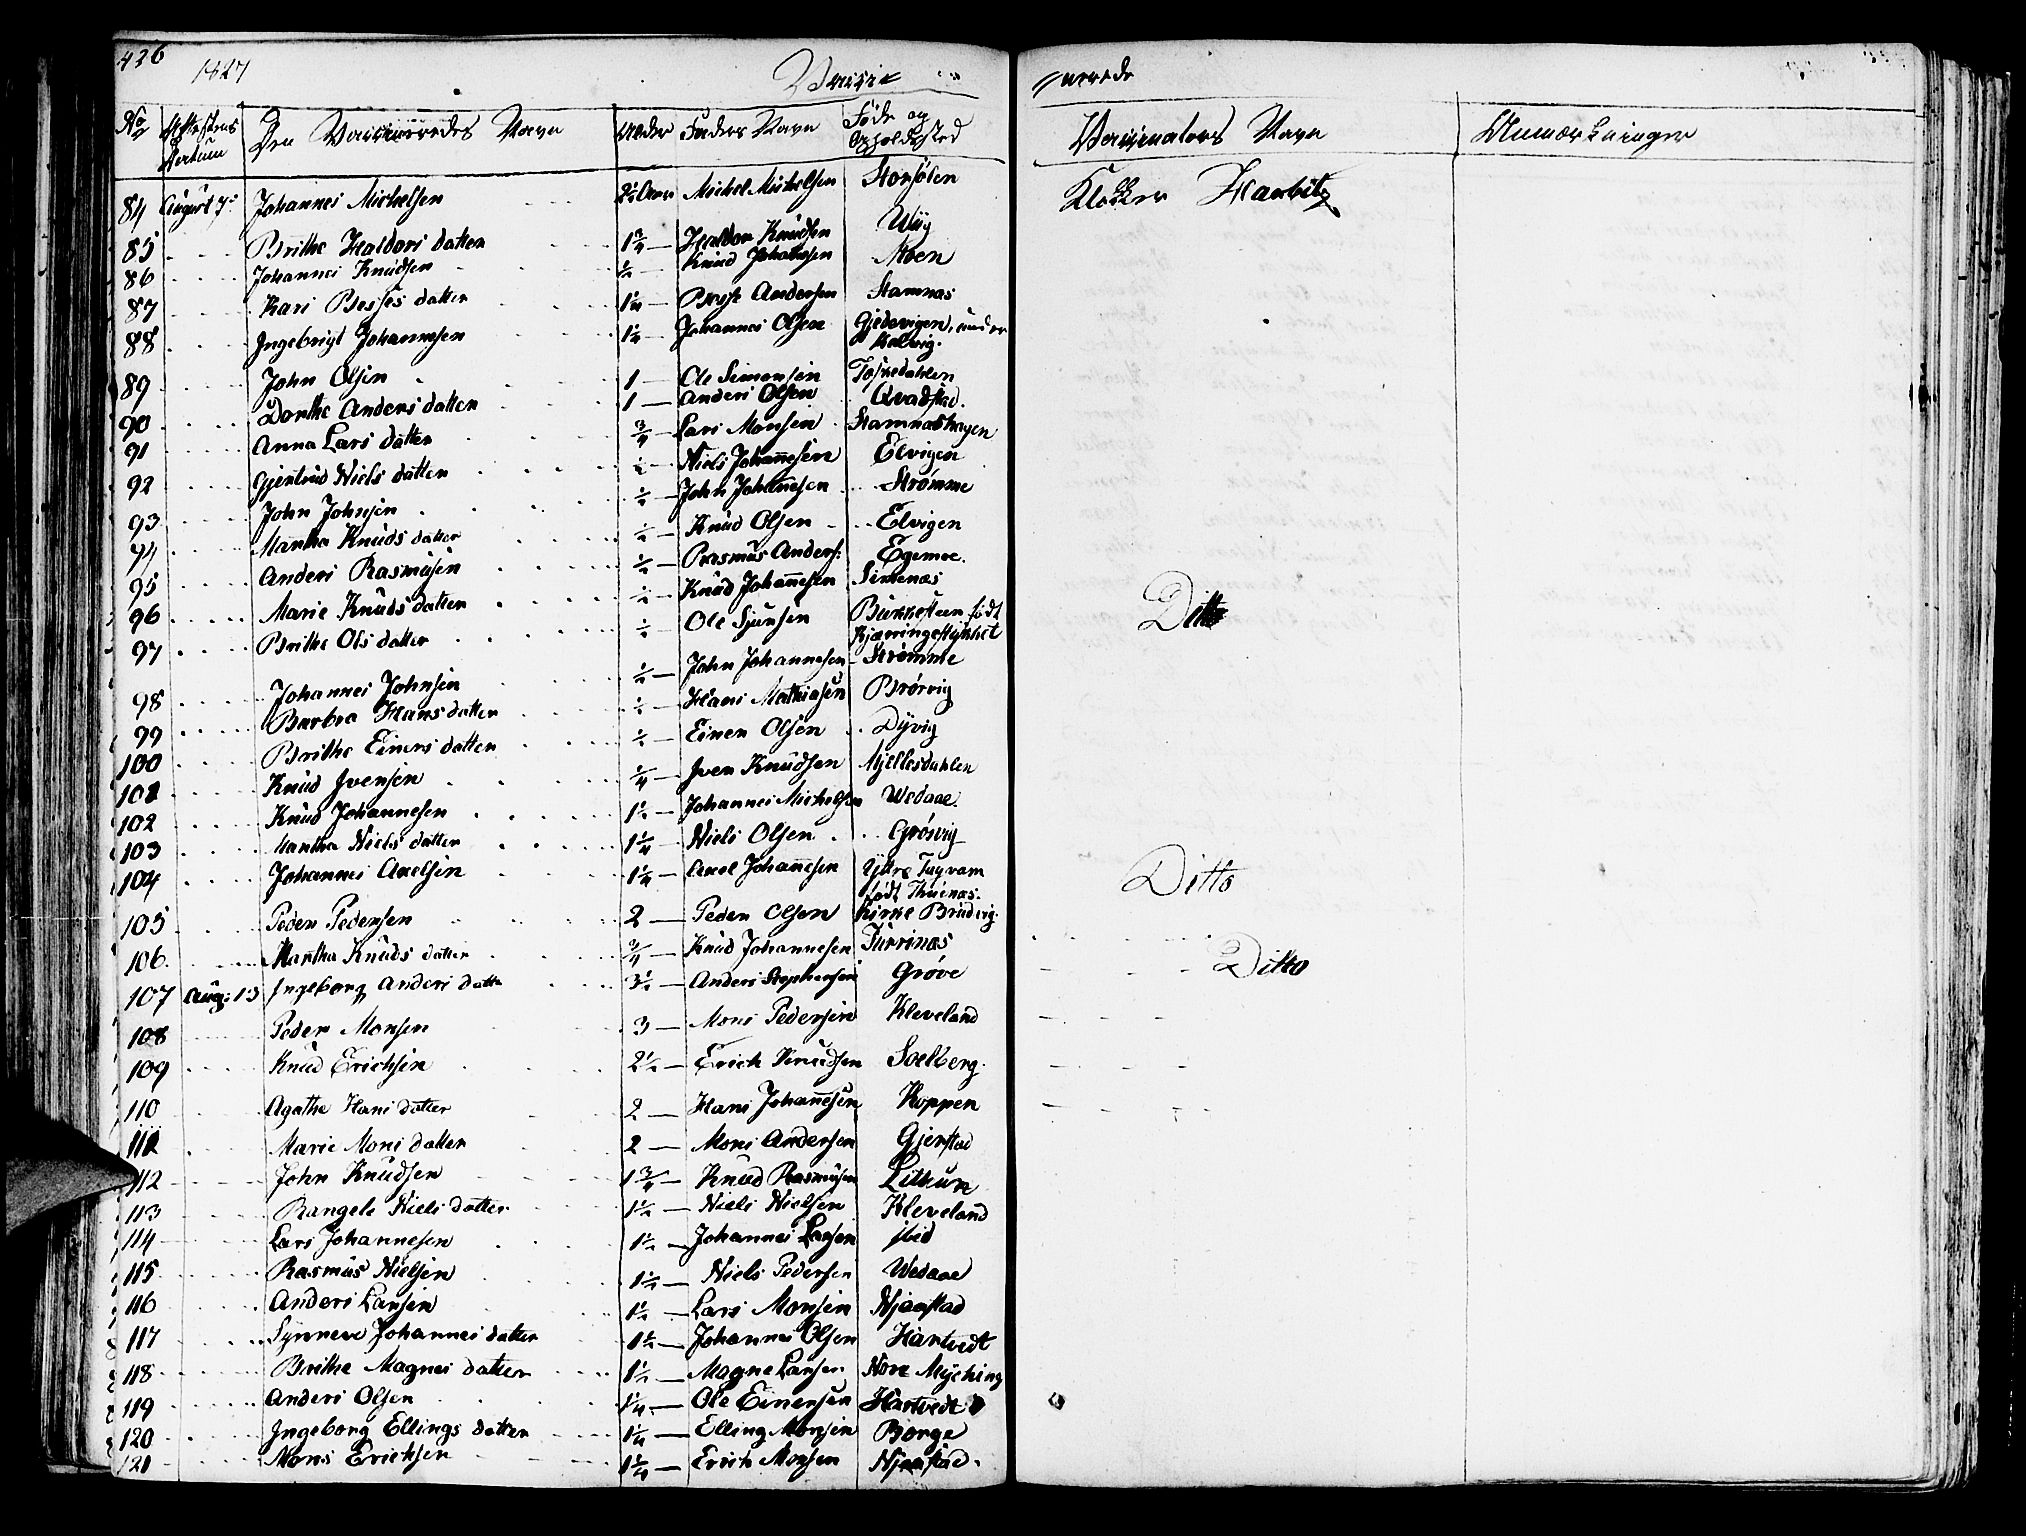 436
1827
Vacci-
No
Attestens Datum
Den Vaccineredes Navn
Alder
Faders Navn
Føde og Opholdssted
84 August 7: Johannes Michelsen 2½ Aar Michel Michelsen Storsølen
85 Brithe Haldors datter 1¾ Haldor Knudsen Wiig
86 Johannes Knudsen ½ Knud Johannesen Moen
87 Kari Besses datter 1½ Andersen Stamnæs
88 Ingebrigt Johannesen 1½ Johannes Olsen Gjedevigen, under Kalvig.
89 John Olsen 1 Ole Simonsen Toskedahlen
90 Dorthe Anders datter 1 Anders Olsen Qvadstad.
91 Anna Lars datter ¾ Lars Monsen Stamnæshagen
92 Gjertrud Niels datter ½ Niels Johannesen Elvigen
93 John Johnsen ½ John Johannesen Strømme
94 Martha Knuds datter ½ Knud Olsen Elvigen
95 Anders Rasmusen ½ Rasmus Anders: Egemoe.
96 Marie Knuds datter ½ Knud Johannesen Simenæs
97 Brithe Ols datter ½ Ole Sjursen Birkesteen født Kjæringestykket
98 Johannes Johnsen ½ John Johannesen Strømme
99 Barbra Hans datter ½ Hans Mathiasen Brørvig
100 Brithe Einers datter ½ Einer Olsen Dyvig
101 Knud Iversen ¼ Iver Knudsen Mjellesdahlen
102 Knud Johannesen 1½ Johannes Michelsen Wedaae.
103 Martha Niels datter 1¼ Niels Olsen Grøsvig
104 Johannes Axelsen 1¼ Axel Johannesen Yttre Tugvam født Thunæs.
105 Peder Pedersen 2 Peder Olsen Kirke Bruvig.
106 Martha Knuds datter ¾ Knud Johannesen Turrinæs
107 Aug: 13 Ingeborg Anders datter 3½ Anders Stephensen Grøve
108 Peder Monsen 3 Mons Pedersen Kleveland
109 Knud Erichsen 2½ Erich Knudsen Soelberg.
110 Agathe Hans datter 2 Hans Johannesen Koppen
111 Marie Mons datter 2 Mons Andersen Gjerstad
112 John Knudsen 1¾ Knud Rasmusen Littun
113 Rangele Niels datter 1½ Niels Nielsen Kleveland
114 Lars Johannesen 1½ Johannes Larsen ibid
115 Rasmus Nielsen 1½ Niels Pedersen Wedaae
116 Anders Larsen 1½ Lars Monsen Njaastad
117 Synneve Johannes datter 1½ Johannes Olsen Hartvedt
118 Brithe Magnes datter 1½ Magne Larsen Nore Myching
119 Anders Olsen 1¼ Ole Einersen Hartvedt
120 Ingeborg Ellings datter 1¼ Elling Monsen Borge
121 Mons Erichsen 1¼ Erich Monsen Njaastad.
nerede
Vaccinators Navn
Anmærkninger
Klokker Harbitz
Ditto
Ditto
Ditto